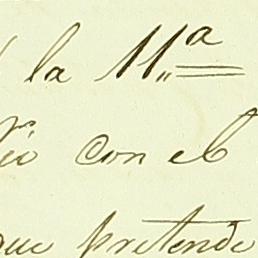 la 11.ª
con el
que pretende